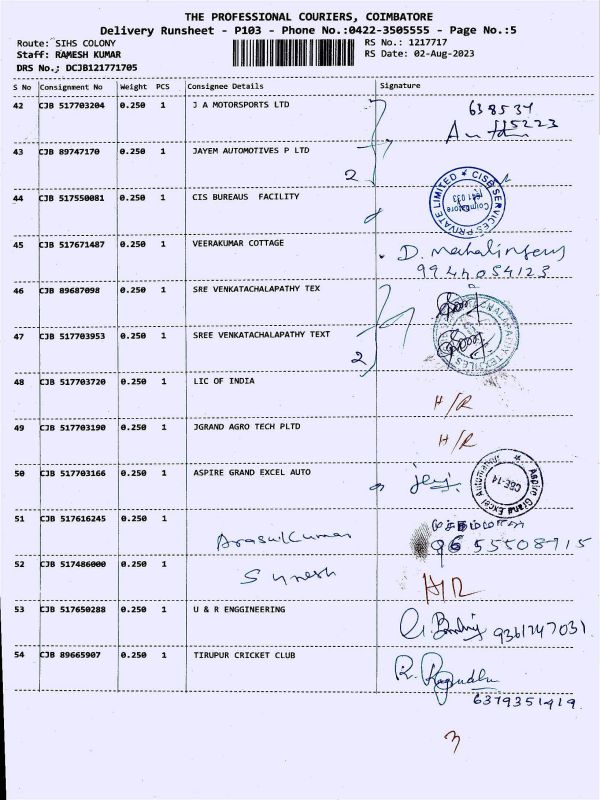 THE PROFESSIONAL COURIERS, COIMBATORE
Delivery Runsheet - P103 - Phone No.:0422-3505555 - Page No.:5
Route: SIHS COLONY RS No.: 1217717
Staff: RAMESH KUMAR RS Date: 02-Aug-2023
DRS No.; DCJB121771705
S No Consignment No Weight PCS Consignee Details Signature
42 CJB 517703204 0.250 1 J A MOTORSPORTS LTD 638534
115223
43 CJB 89747170 0.250 1 JAYEM AUTOMOTIVES P LTD
2
44 CJB 517550081 0.250 1 CIS BUREAUS FACILITY
CISB SERVICES PRIVATE LIMITED
Coimbatore
641 033
45 CJB 517671487 0.250 1 VEERAKUMAR COTTAGE
9944054123
46 CJB 89687098 0.250 1 SRE VENKATACHALAPATHY TEX
47 CJB 517703953 0.250 1 SREE VENKATACHALAPATHY TEXT
2
48 CJB 517703720 0.250 1 LIC OF INDIA H/R
49 CJB 517703190 0.250 1 JGRAND AGRO TECH PLTD H/R
50 CJB 517703166 0.250 1 ASPIRE GRAND EXCEL AUTO
Aspire Grand Excel Automation
CBE-14
51 CJB 517616245 0.250 1 Arasukumar
9655508915
52 CJB 517486000 0.250 1 Suresh H/R
53 CJB 517650288 0.250 1 U & R ENGGINEERING 9361747031
54 CJB 89665907 0.250 1 TIRUPUR CRICKET CLUB
6379351419
3